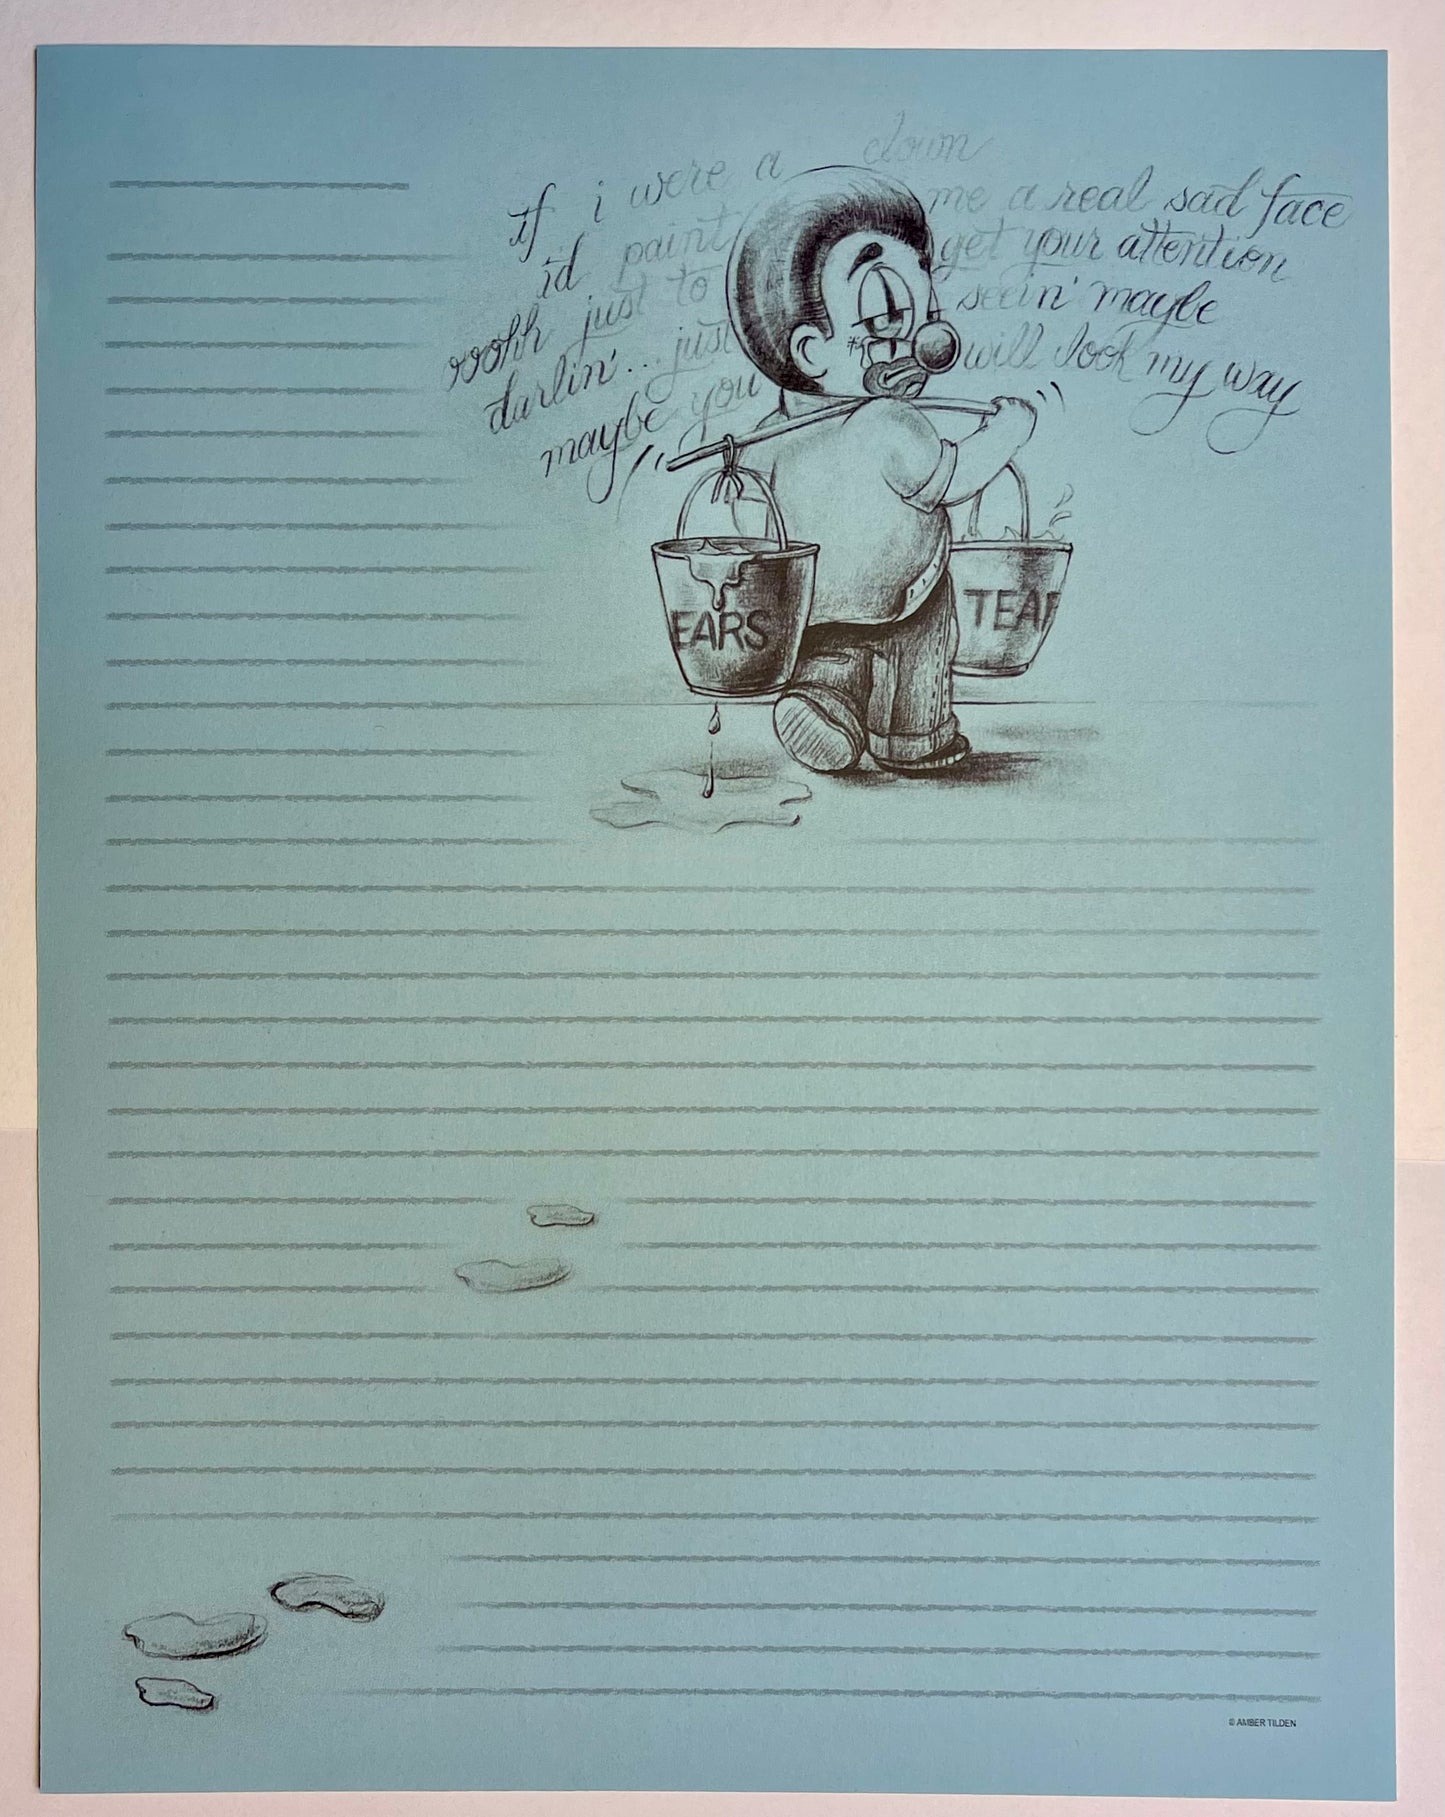 if i were a clown
id paint me a real sad face
oohh just to get your attention
darlin'... just seein' maybe
maybe you will look my way
EARS
TEAR
© AMBER TILDEN